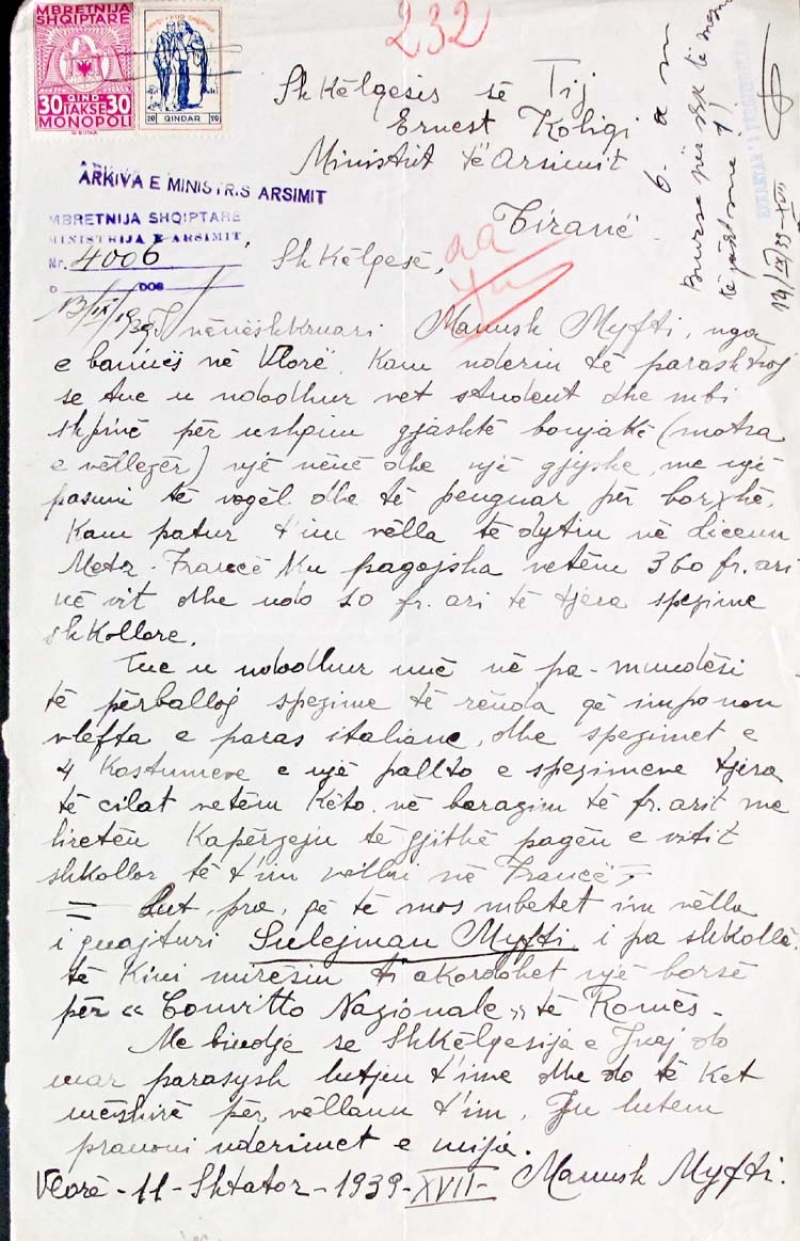 MBRETNIJA
SHQIPTARE
30 GIND TAKSE 30
MONOPOLI
QINDAR
232
Shkëlqesës së Tij
Ernest Koliqi
Ministrit të Arsimit
Tiranë
ARKIVA E MINISTRIS ARSIMIT
MBRETNIJA SHQIPTARE
MINISTRIJA E ARSIMIT
Nr. 4006
D DOS
13/IX/1939
Shkëlqesë,
6. a m
Bursa për
14/IX/39-XVII
I nënëshkruari Manush Myfti, nga
e banues në Vlorë. Kam nderin të parashtroj
se tue u ndodhur vet student dhe mbi
shpinë për ushqim gjashtë bonjakë (motra
e vëllezër) një nënë dhe një gjyshe, me një
pasuni të vogël dhe të penguar për borxhe.
Kam patur t'im vëlla të dytin në Liceun
Metz - Francë ku pagojsha vetëm 360 fr. ari
në vit dhe ndo 10 fr. ari të tjera spezime
shkollore.
Tue u ndodhur unë në pa-mundësi
të përballoj spezime të rënda që imponon
vlefta e paras italiane, dhe spezimet e
4 Kostumeve e një pallto e spezimeve tjera
të cilat vetëm këto në barazim të fr. arit me
liretën kapërzejn të gjithë pagën e vitit
shkollor të t'im vëllai në Francë;-
= Lut, pra, që të mos mbetet im vëlla
i quajturi Sulejman Myfti, i pa shkollë,
të kini mirësin t'i akordohet një borsë
për « Convitto Nazionale » të Romës -
Me bindje se Shkëlqesija e Juaj do
mar parasysh lutjen t'ime dhe do të ket
mëshirë për vëllanu t'im. Ju lutem
pranoni nderimet e mija.
Vlorë - 11 - Shtator - 1939 - XVII - Manush Myfti.